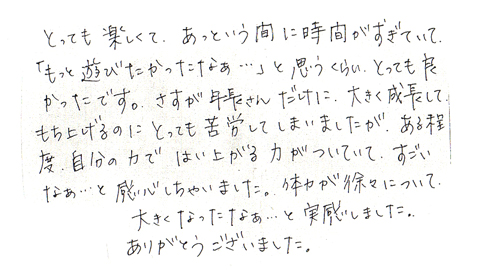 とっても楽しくて、あっという間に時間がすぎていて、
「もっと遊びたかったなぁ…」と思うくらい、とっても良
かったです。さすが年長さんだけに、大きく成長して、
もち上げるのにとっても苦労してしまいましたが、ある程
度、自分の力ではい上がる力がついていて、すごい
なぁ…と感心しちゃいました。体力が徐々について、
大きくなったなぁ…と実感しました。
ありがとうございました。